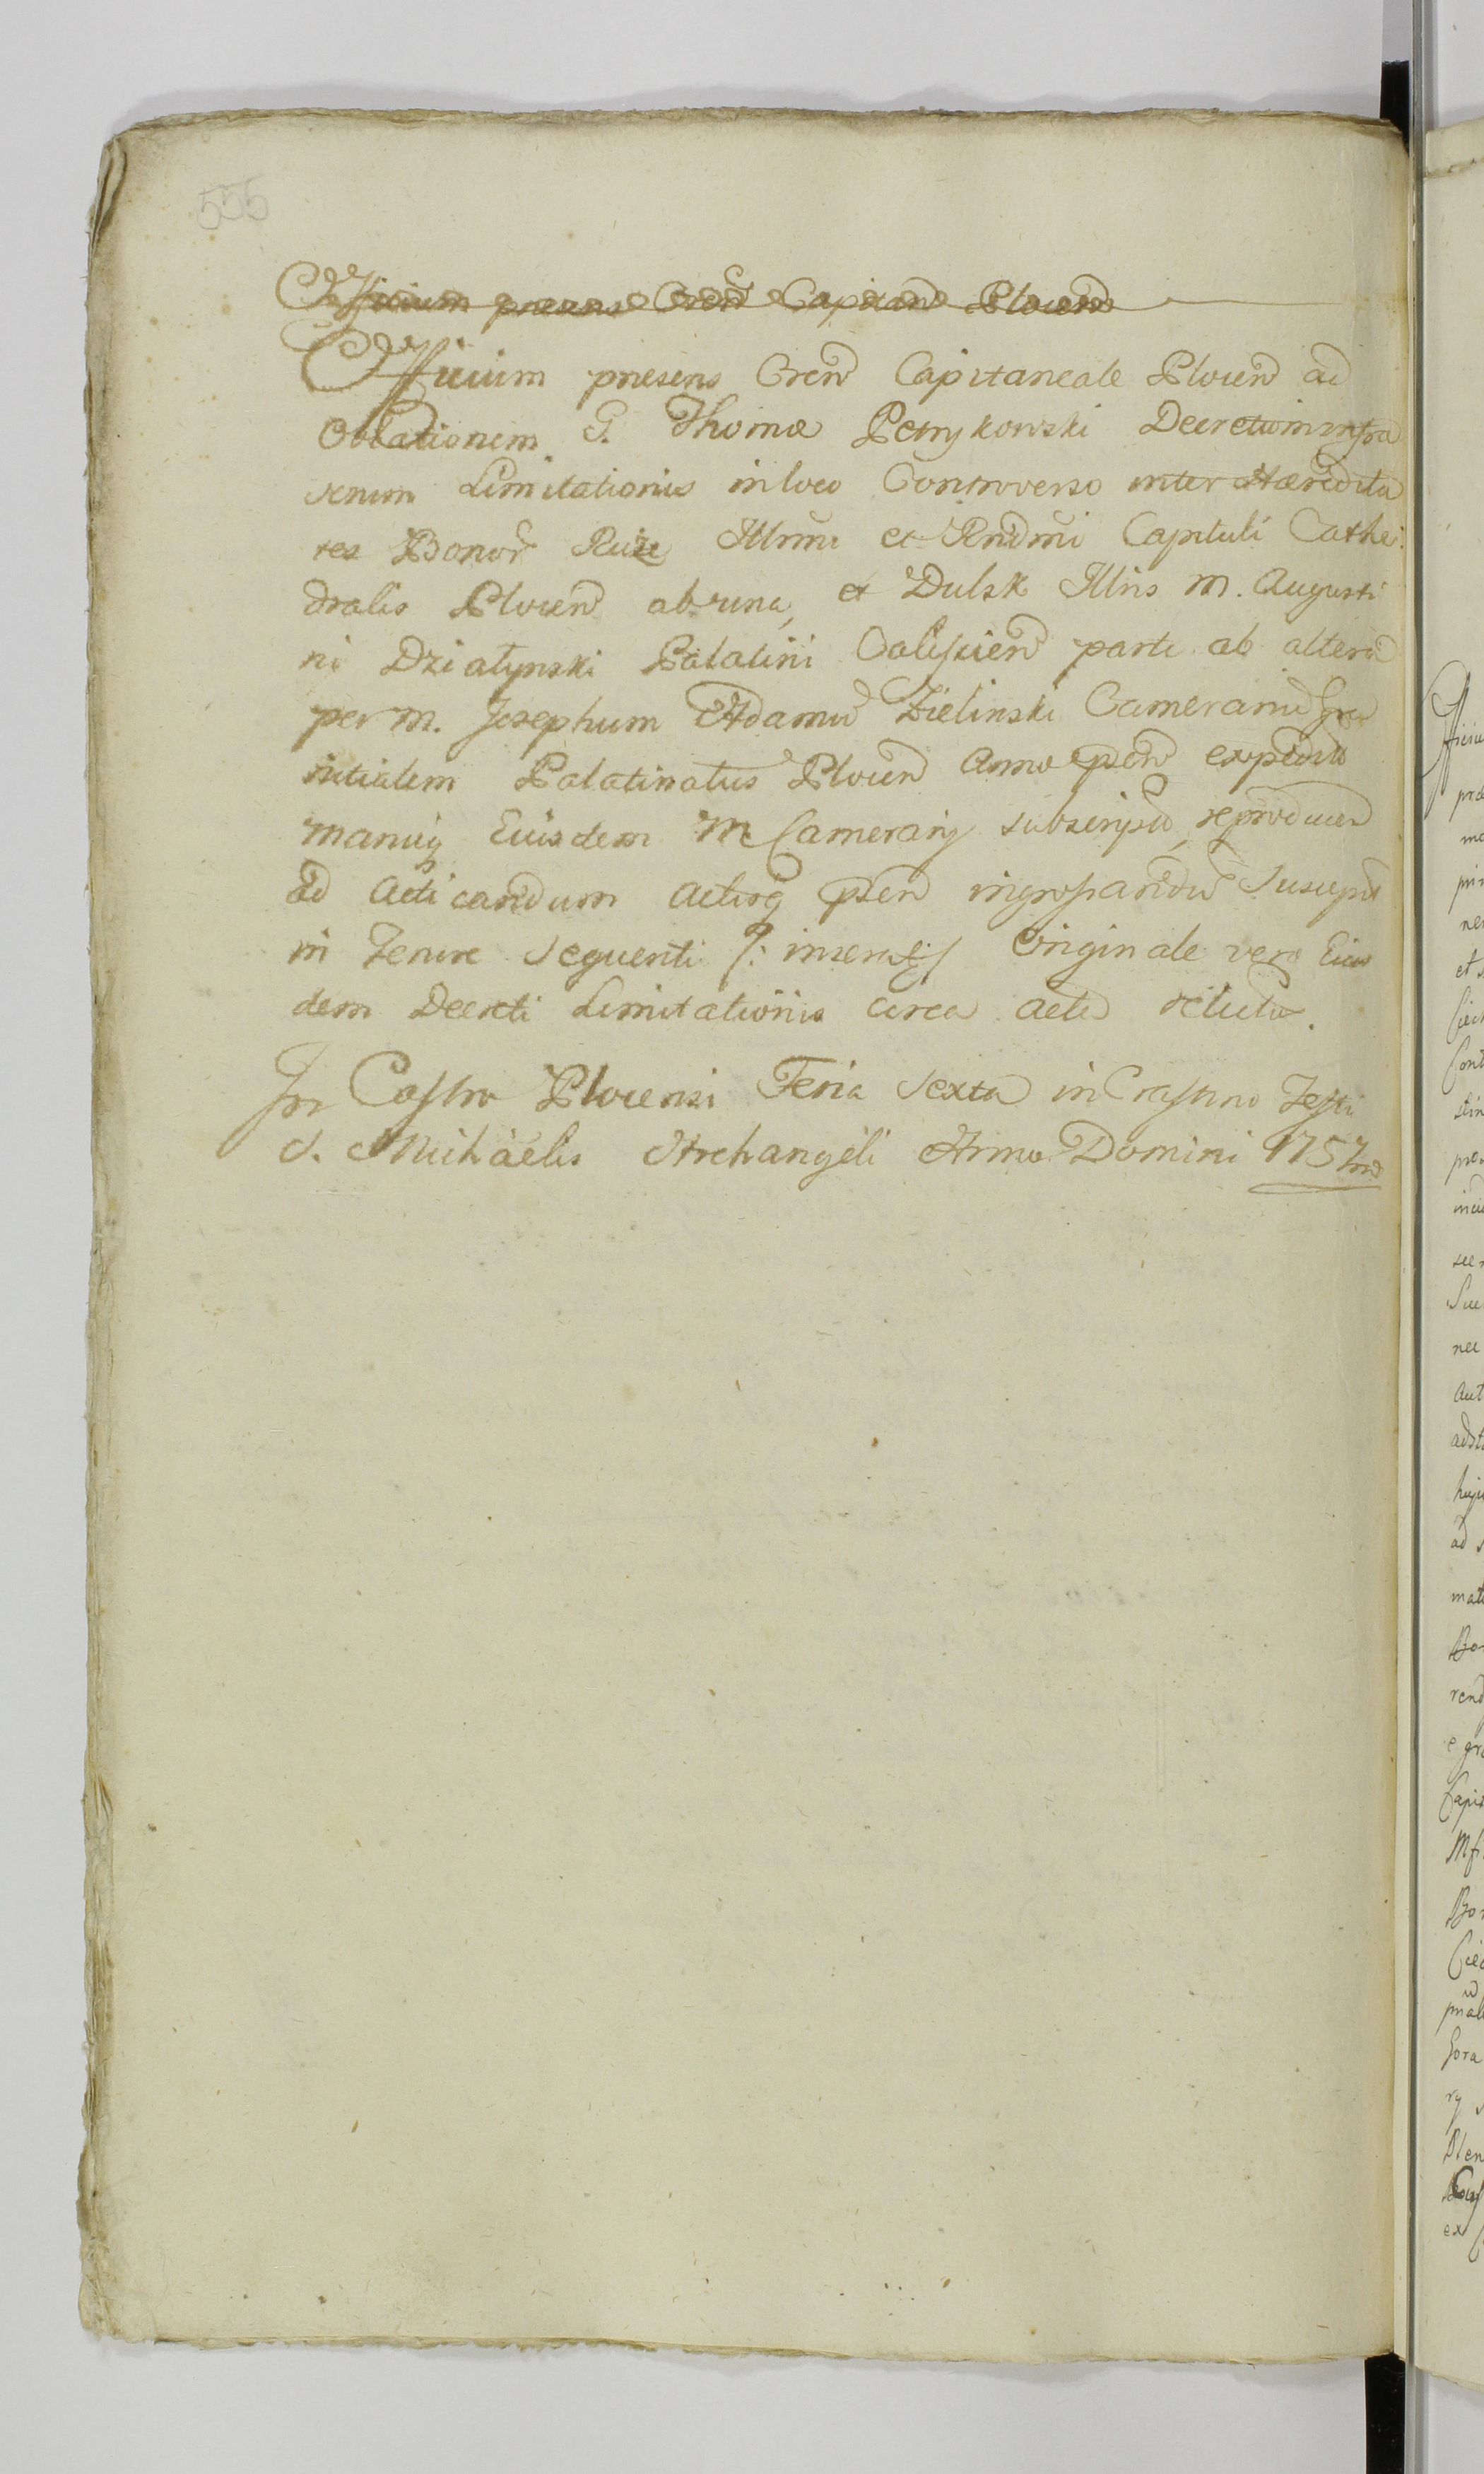 555
Officium præsens Cren Capitan Plocen
Officium præsens Cren Capitaneale Plocen ad
Oblationem G. Thomæ Petrykowski Decretum infra
Limitationis in loco Controverso inter Hæredita
tes Bonor Ruże Illmi et Rndmi Capituli Cathe:
dralis Plocen ab una, et Dulsk Illris M. Augusti
ni Działynski Palatini Calisien parte ab altera
per M. Josephum Adamu Zielinski Camerariu Gra
nitialem Palatinatus Plocen Anno psen expeditu
manuq Eiusdem M Camerarij subscriptu, reproducen
ad Acticandum Actisq psen ingrossandu Suscepit
in Tenore Sequenti Originale vero Eius
dem Decreti Limitationis circa Acta relictu.
In Castro Plocensi Feria Sexta in Crastino Festi
S. Michaëlis Archangeli Anno Domini 1757mo